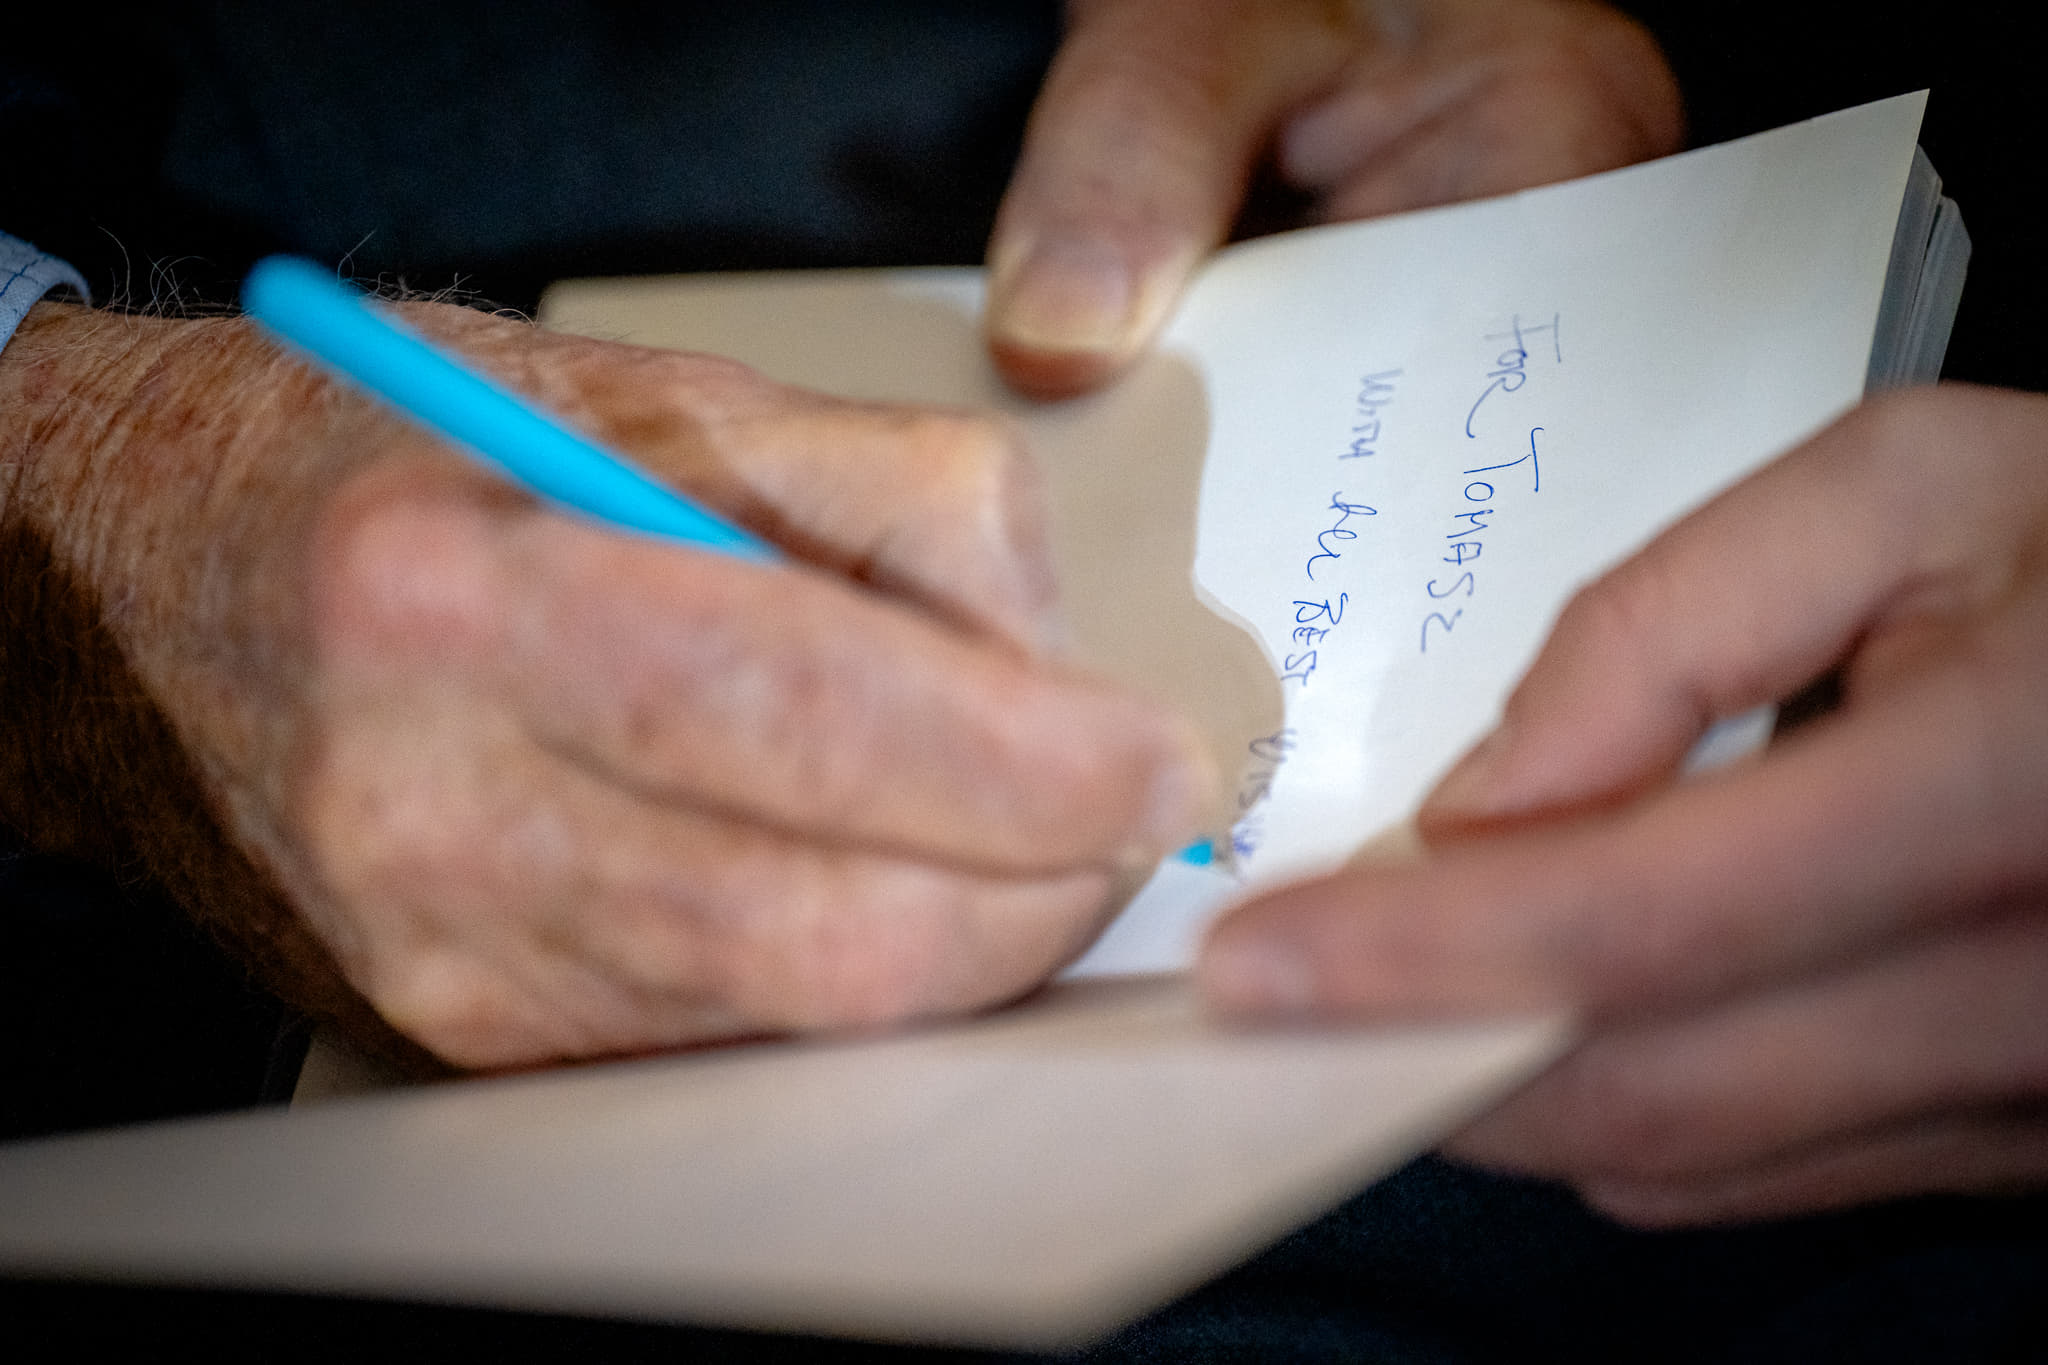 FOR TOMASZ
WITH the BEST WISH